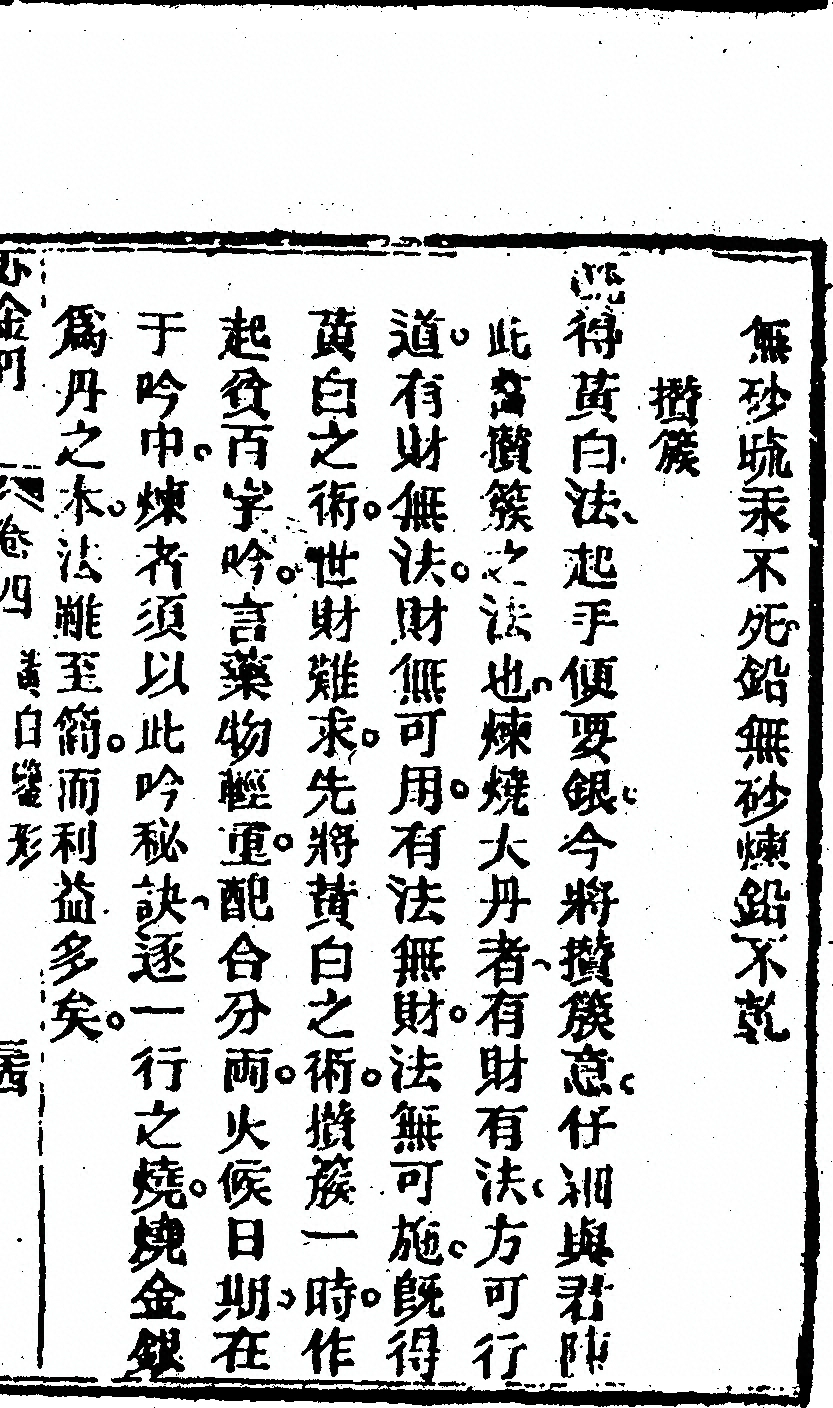 無砂硫汞不死鉛無砂煉鉛不乾
攢簇
既得黃白法起手便要銀今將攢簇意仔細與君陳
此言攢簇之法也煉燒大丹者有財有法方可行
道有財無法財無可用有法無財法無可施旣得
黃白之術世財難求先將黃白之術攢簇一時作
起貧百字吟言藥物輕重配合分兩火候日期在
于吟中煉者須以此吟秘訣逐一行之燒燒金銀
爲丹之本法雖至簡而利益多矣
金丹 卷四 黃白鑒形